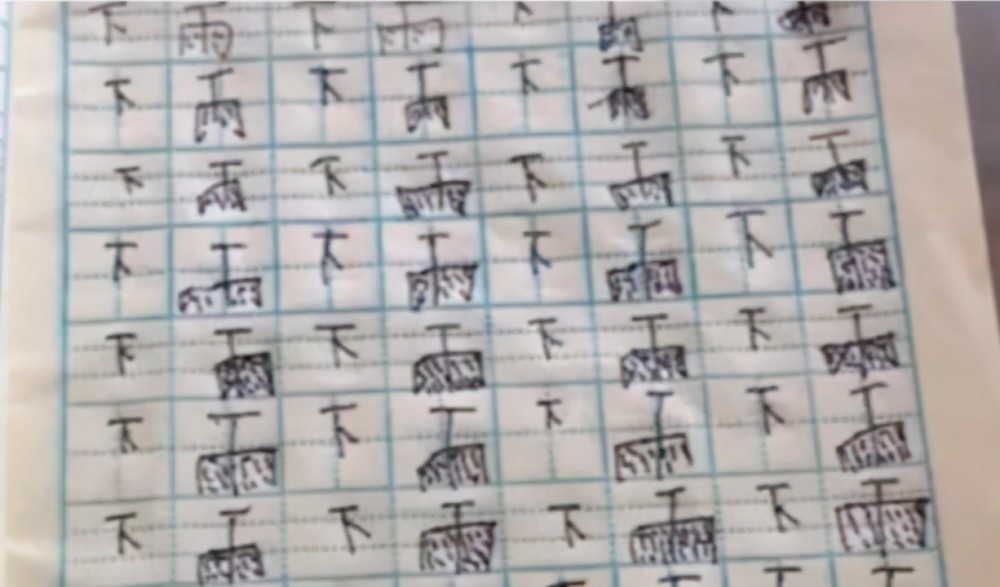 下雨下雨下雨下雨
下雨下雨下雨下雨
下雨下雨下雨下雨
下雨下雨下雨下雨
下雨下雨下雨下雨
下雨下雨下雨下雨
下雨下雨下雨下雨